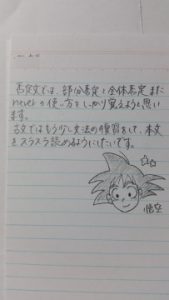 否定文では、部分否定と全体否定、また
neverの使い方をしっかり覚えようと思い
ます。
古文ではもう少し文法の復習をして、本文
をスラスラ読めるようにしたいです。
悟空